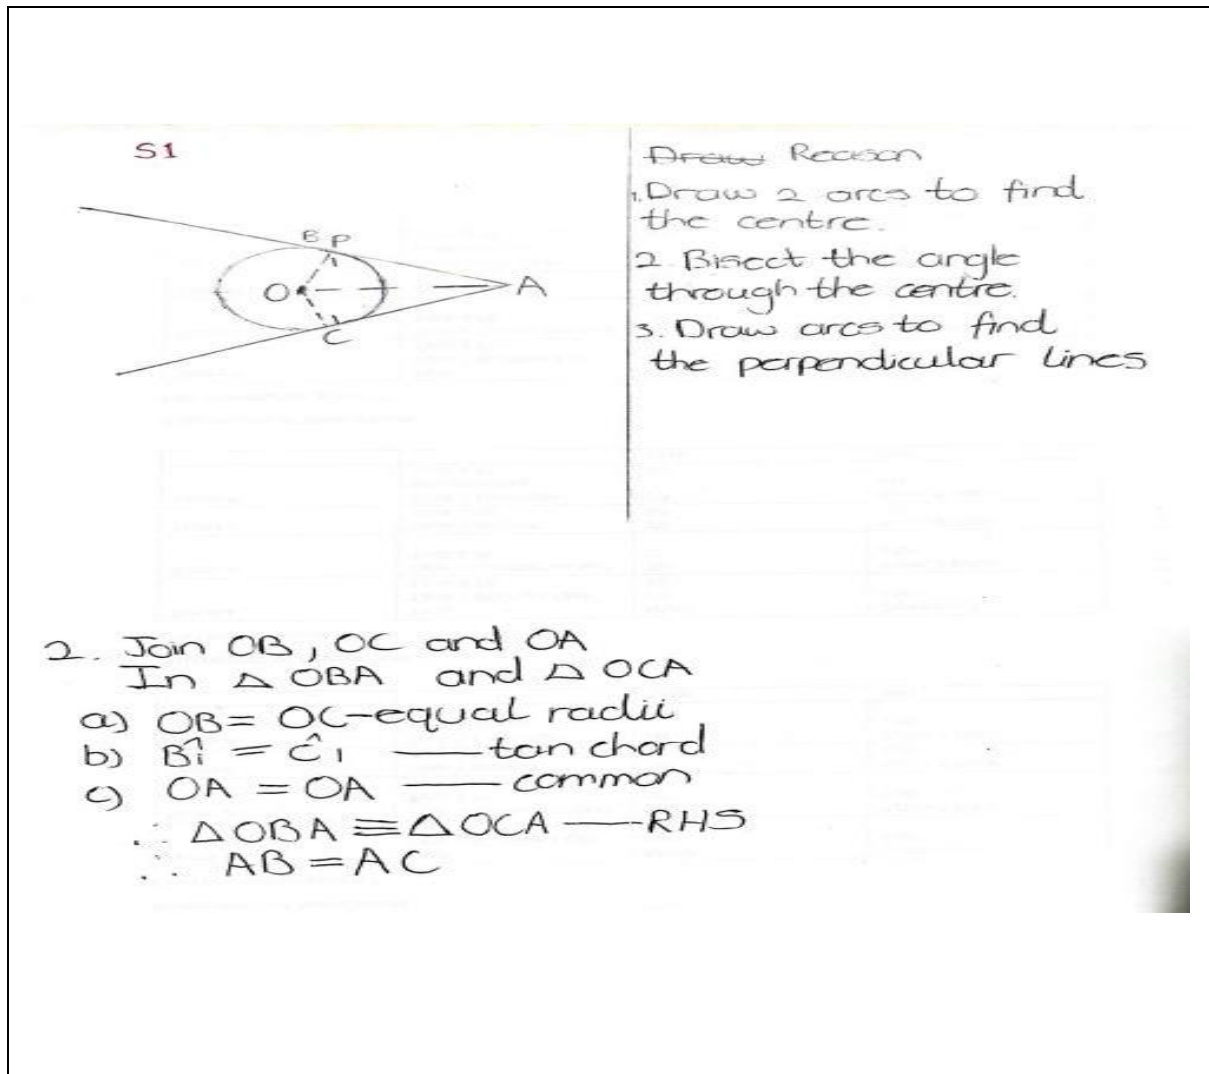 S1
B P
O
A
C
Draw Reason
1. Draw 2 arcs to find
the centre.
2. Bisect the angle
through the centre.
3. Draw arcs to find
the perpendicular lines
2. Join OB, OC and OA
In △ OBA and △ OCA
a) OB = OC - equal radii
b) B̂₁ = Ĉ₁ — tan chord
c) OA = OA — common
∴ △OBA ≡ △OCA — RHS
∴ AB = AC